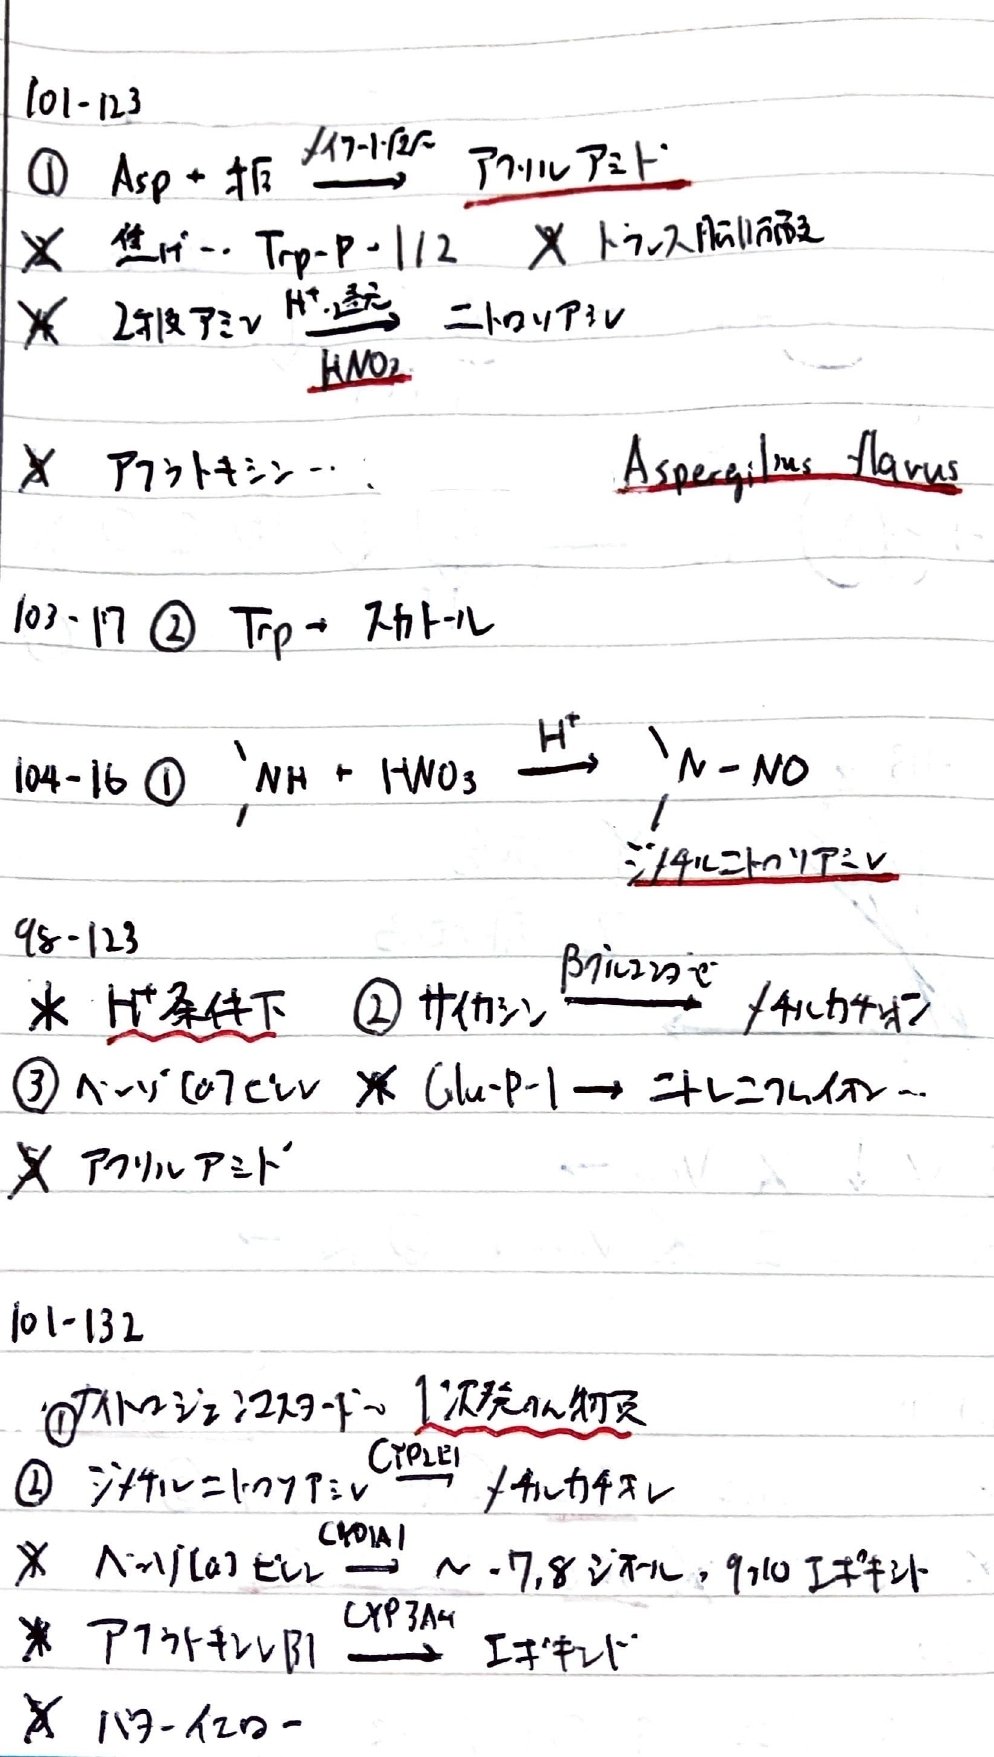 101-123
① Asp + 糖 メイラード反応 → アクリルアミド
焦げ… Trp-P-1/2 トランス脂肪酸
2級アミン H⁺・還元 → HNO₂ ニトロソアミン
アフラトキシン… Aspergillus flavus
103-17 ② Trp → スカトール
104-16 ① NH + HNO₃ H⁺ → N-NO
ジメチルニトロソアミン
98-123
H⁺条件下 ② サイカシン βグルコシダーゼ → メチルカチオン
③ ベンゾ[a]ピレン Glu-P-1 → ニトレニウムイオン…
アクリルアミド
101-132
① ナイトロジェンマスタード〜 1次発がん物質
② ジメチルニトロソアミン CYP2E1 → メチルカチオン
ベンゾ[a]ピレン CYP1A1 → 〜-7,8ジオール,9,10エポキシド
アフラトキシンB1 CYP3A4 → エポキシド
バターイエロー